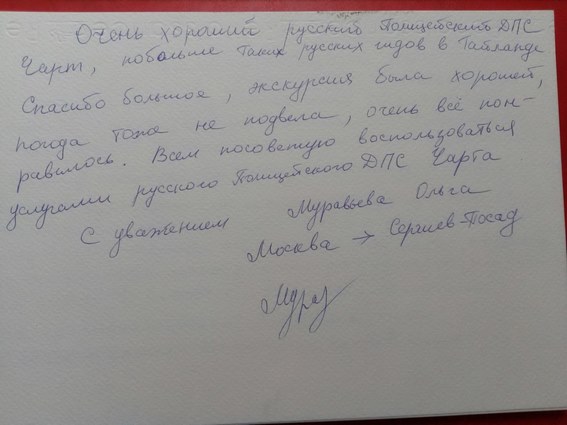 Очень хороший русский Полицейский ДПС
Чарт, побольше таких русских гидов в Тайланде
Спасибо большое, экскурсия была хорошей,
погода тоже не подвела, очень всё пон-
равилось. Всем посоветую воспользоваться
услугами русского Полицейского ДПС Чарта
С уважением Муравьева Ольга
Москва → Сергиев-Посад